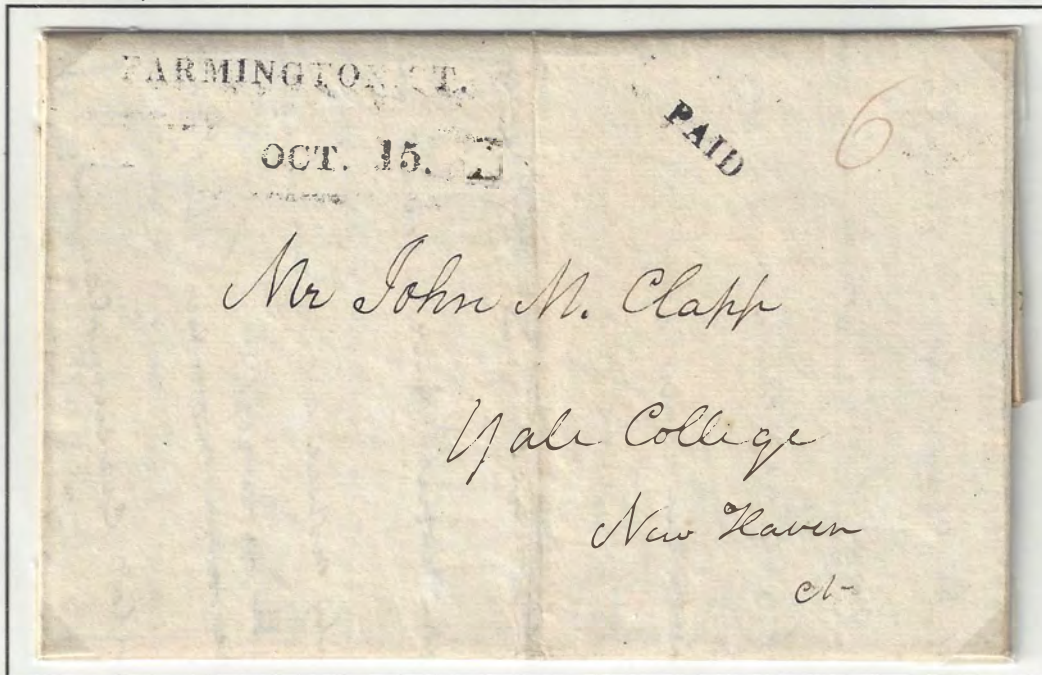 FARMINGTON CT.
PAID
6
OCT. 15.
Mr John M. Clapp
Yale College
New Haven
Ct-